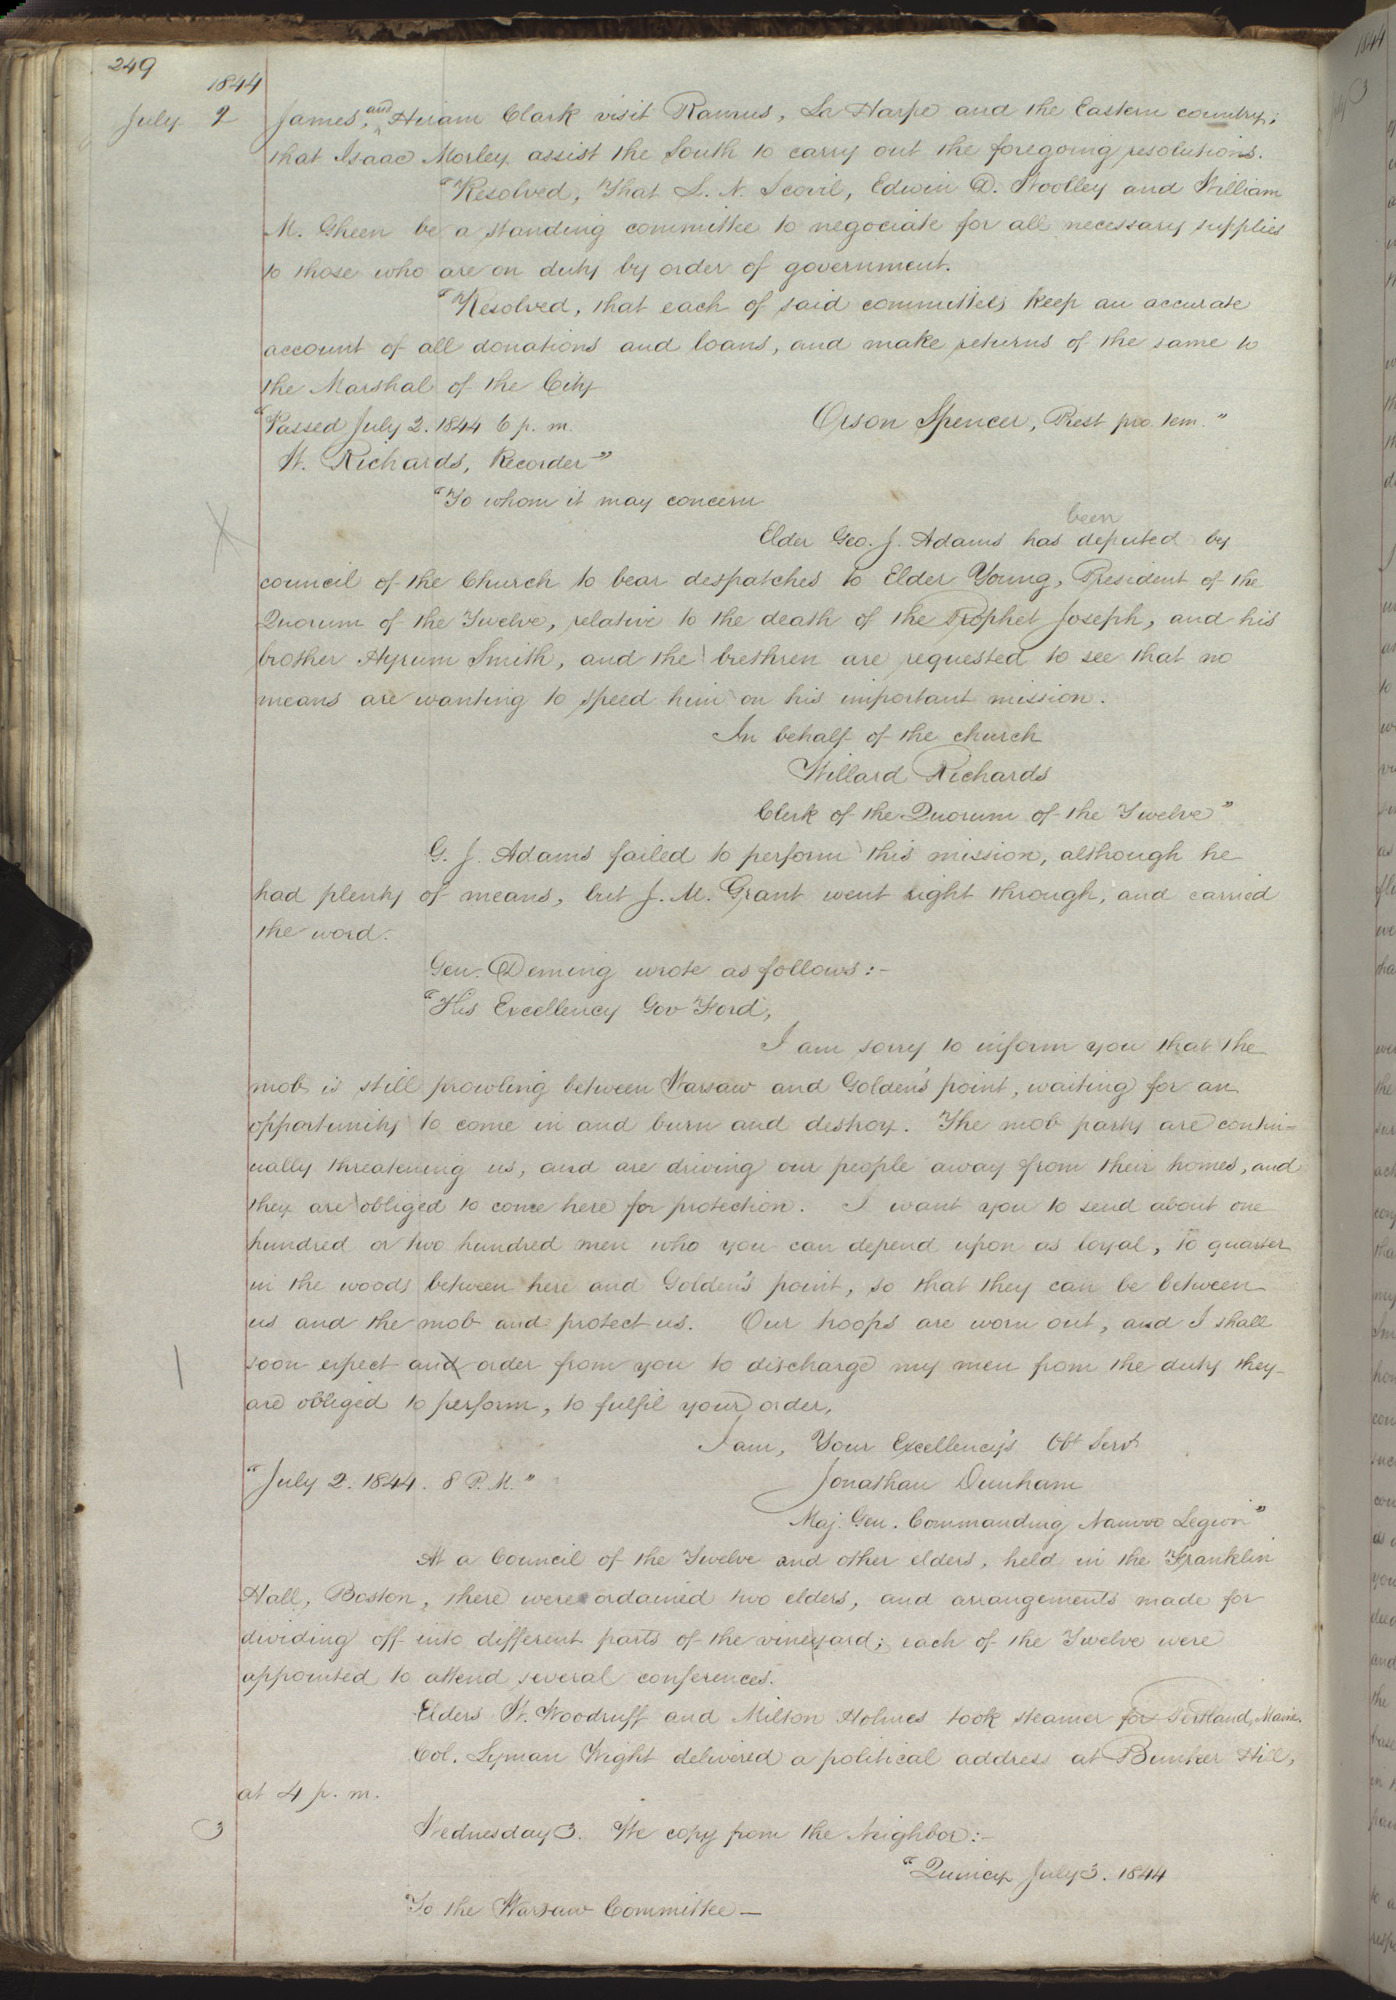 249
1844
July 2 James, and Hiram Clark visit Ramus, La Harpe and the Eastern country;
that Isaac Morley assist the South to carry out the foregoing resolutions.
"Resolved, That L. N. Scovil, Edwin D. Woolley and William
M. Gheen be a standing committee to negociate for all necessary supplies
to those who are on duty by order of government.
"Resolved, that each of said committees keep an accurate
account of all donations and loans, and make returns of the same to
the Marshal of the City
"Passed July 2. 1844 6 p. m. Orson Spencer, Prest pro. tem."
W. Richards, Recorder"
"To whom it may concern
Elder Geo. J. Adams has been deputed by
council of the Church to bear despatches to Elder Young, President of the
Quorum of the Twelve, relative to the death of the Prophet Joseph, and his
brother Hyrum Smith, and the brethren are requested to see that no
means are wanting to speed him on his important mission.
In behalf of the church
Willard Richards
Clerk of the Quorum of the Twelve"
G. J. Adams failed to perform this mission, although he
had plenty of means, but J. M. Grant went right through, and carried
the word.
Gen. Deming wrote as follows:-
"His Excellency Gov Ford,
I am sorry to inform you that the
mob is still prowling between Warsaw and Golden's point, waiting for an
opportunity to come in and burn and destroy. The mob party are contin=
ually threatening us, and are driving our people away from their homes, and
they are obliged to come here for protection. I want you to send about one
hundred or two hundred men who you can depend upon as loyal, to quarter
in the woods between here and Golden's point, so that they can be between
us and the mob and protect us. Our troops are worn out, and I shall
soon expect and order from you to discharge my men from the duty they
are obliged to perform, to fulfil your order,
I am, Your Excellency's Obt Servt
"July 2. 1844. 8 P.M." Jonathan Dunham
Maj. Gen. Commanding Nauvoo Legion"
At a Council of the Twelve and other elders, held in the Franklin
Hall, Boston, there were ordained two elders, and arrangements made for
dividing off into different parts of the vineyard; each of the Twelve were
appointed to attend several conferences.
Elders W. Woodruff and Milton Holmes took steamer for Portland, Maine.
Col. Lyman Wight delivered a political address at Bunker Hill,
at 4 p. m.
3 Wednesday 3. We copy from the Neighbor:-
"Quincy July 3. 1844
"To the Warsaw Committee—